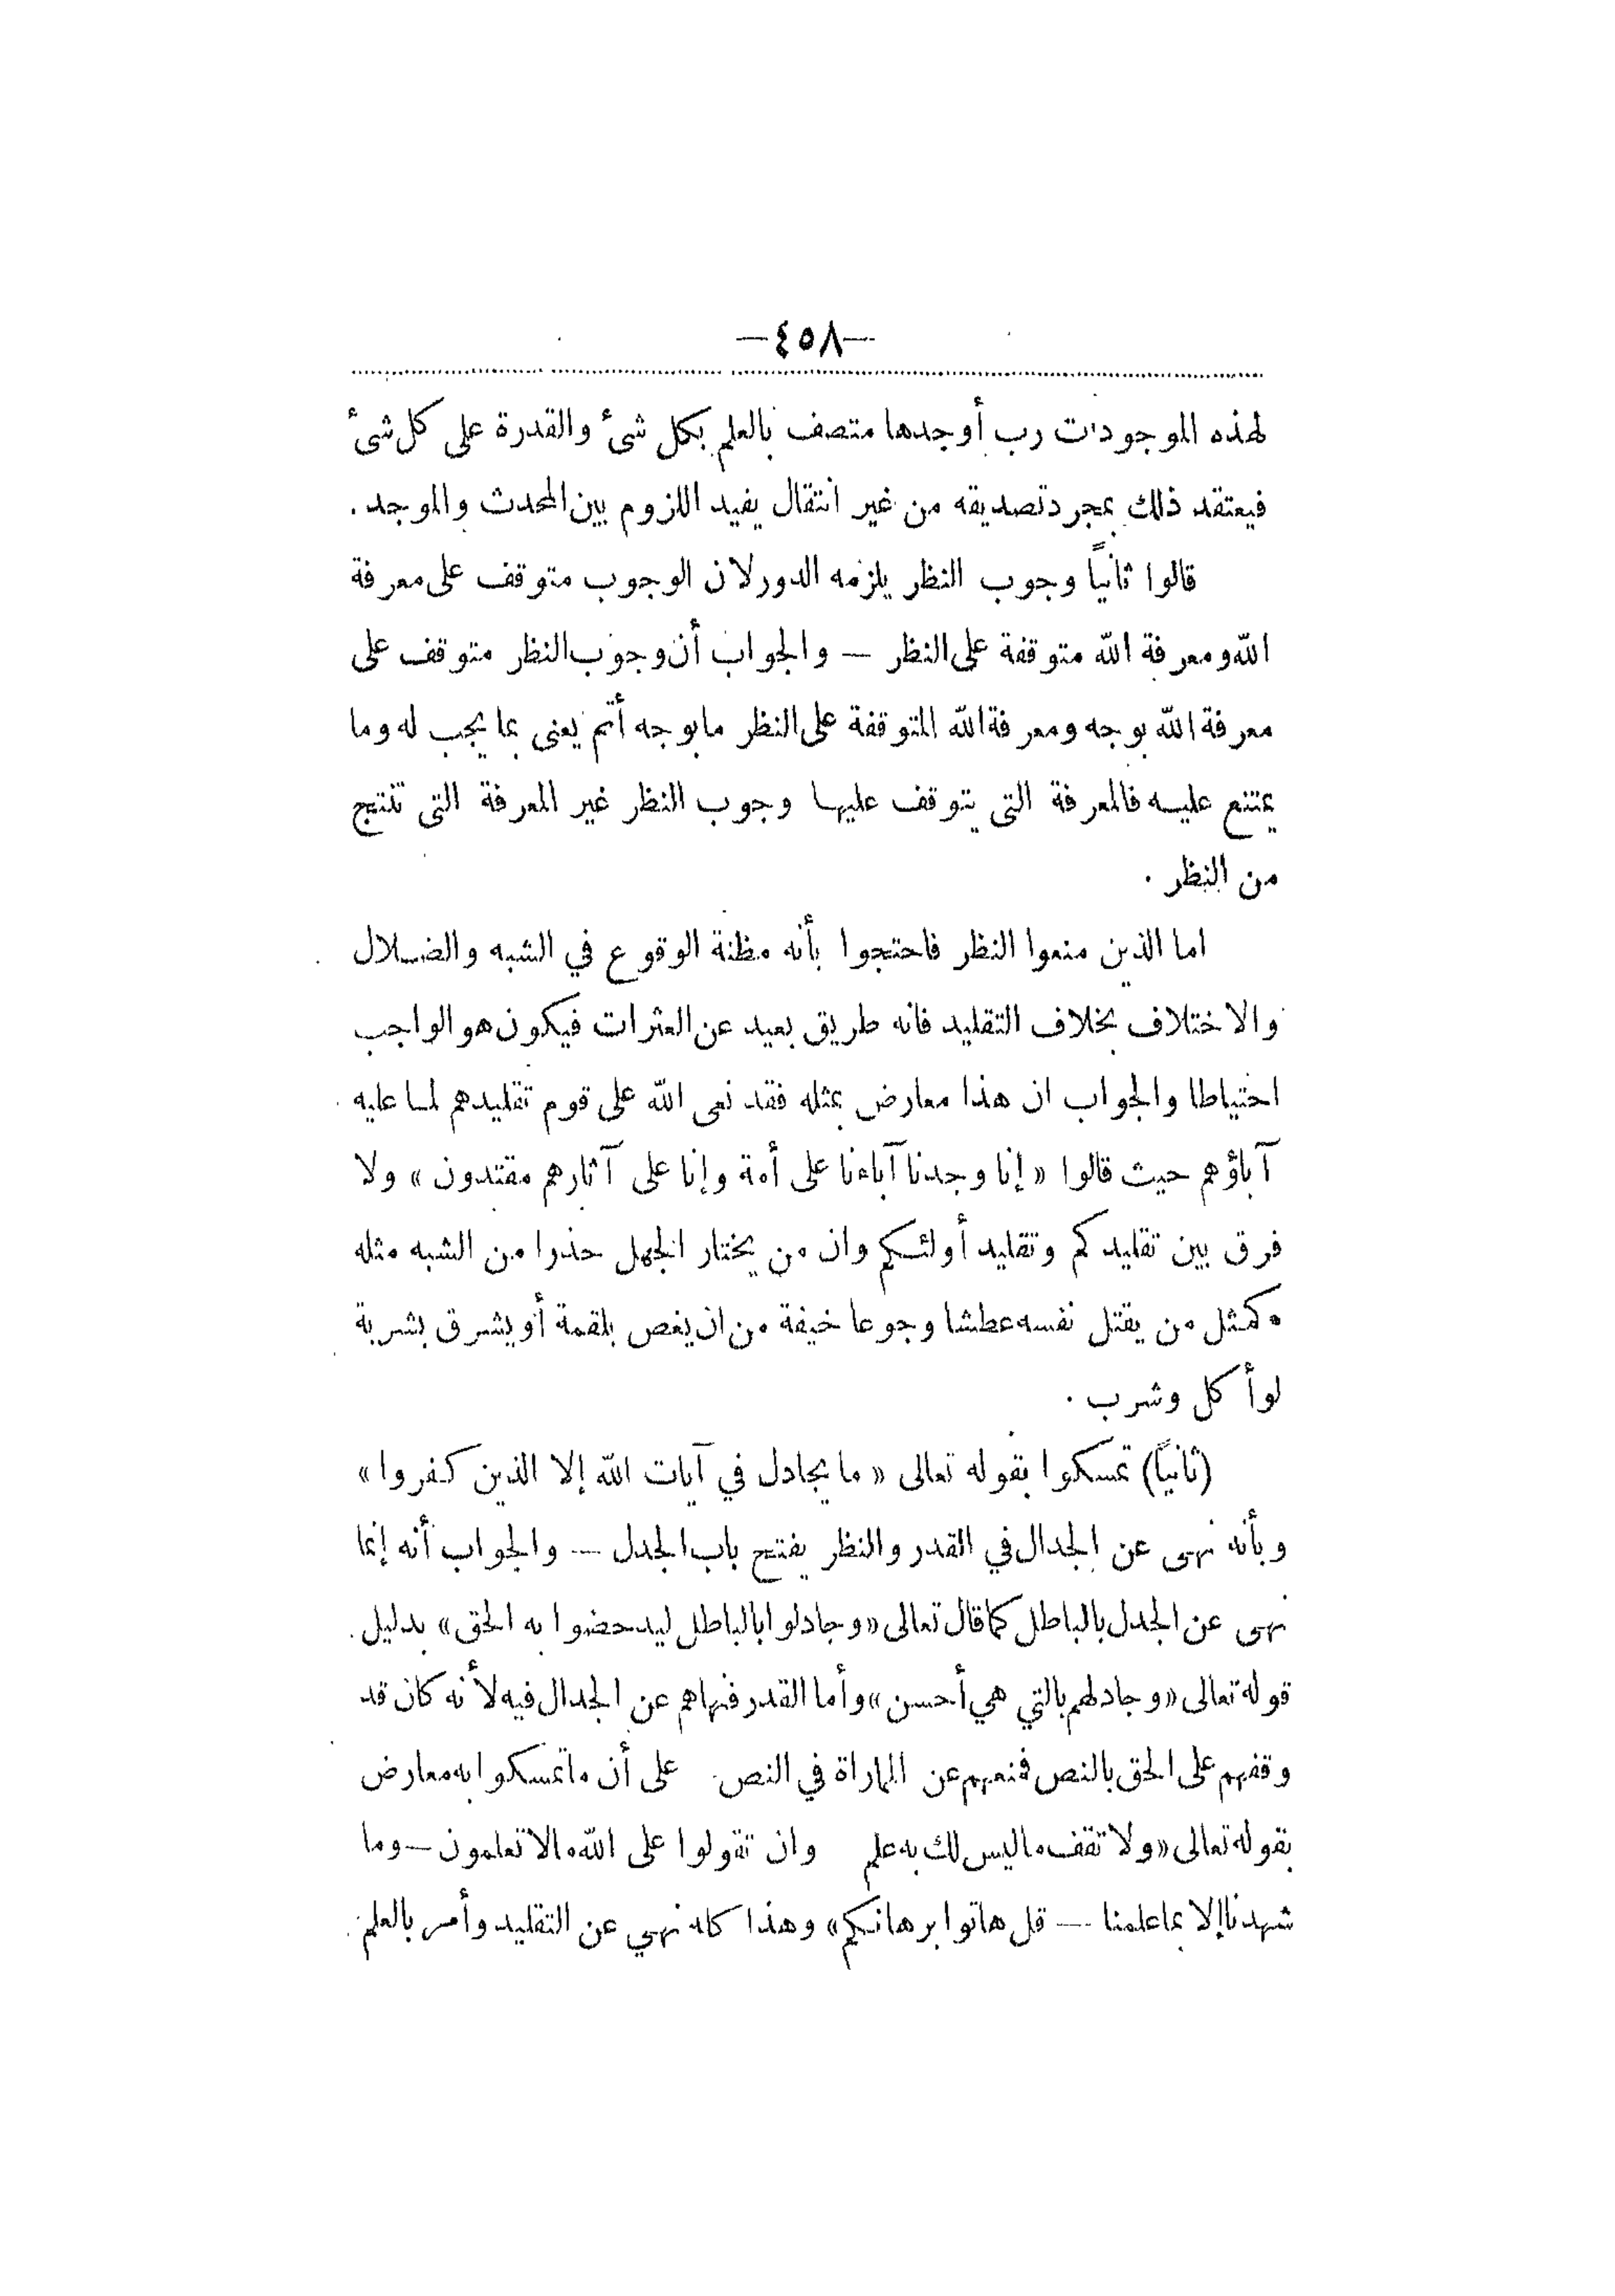 —٤٥٨—
لهذه الموجودات رب أوجدها متصف بالعلم بكل شئ والقدرة على كل شئ
فيعتقد ذلك بمجرد تصديقه من غير انتقال يفيد اللزوم بين المحدث والموجد .
قالوا ثانياً وجوب النظر يلزمه الدور لان الوجوب متوقف على معرفة
الله ومعرفة الله متوقفة على النظر — والجواب أن وجوب النظر متوقف على
معرفة الله بوجه ومعرفة الله المتوقفة على النظر ما بوجه أتم يعنى بما يجب له وما
يمتنع عليه فالمعرفة التى يتوقف عليها وجوب النظر غير المعرفة التى تنتج
من النظر .
اما الذين منعوا النظر فاحتجوا بأنه مظنة الوقوع في الشبه والضلال
والاختلاف بخلاف التقليد فانه طريق بعيد عن العثرات فيكون هو الواجب
احتياطا والجواب ان هذا معارض بمثله فقد نعى الله على قوم تقليدهم لما عليه
آباؤهم حيث قالوا « إنا وجدنا آباءنا على أمة وإنا على آثارهم مقتدون » ولا
فرق بين تقليدكم وتقليد أولئكم وان من يختار الجهل حذرا من الشبه مثله
كمثل من يقتل نفسه عطشا وجوعا خيفة من ان يغص بلقمة أو يشرق بشربة
لو أكل وشرب .
(ثانياً) تمسكوا بقوله تعالى « ما يجادل في آيات الله إلا الذين كفروا »
وبأنه نهى عن الجدال في القدر والنظر يفتح باب الجدل — والجواب أنه إنما
نهى عن الجدل بالباطل كما قال تعالى « وجادلوا بالباطل ليدحضوا به الحق » بدليل
قوله تعالى « وجادلهم بالتي هي أحسن » وأما القدر فنهاهم عن الجدال فيه لأنه كان قد
وقفهم على الحق بالنص فمنعهم عن المماراة في النص على أن ما تمسكوا به معارض
بقوله تعالى « ولا تقف ما ليس لك به علم وان تقولوا على الله مالا تعلمون — وما
شهدنا إلا بما علمنا — قل هاتوا برهانكم » وهذا كله نهي عن التقليد وأمر بالعلم